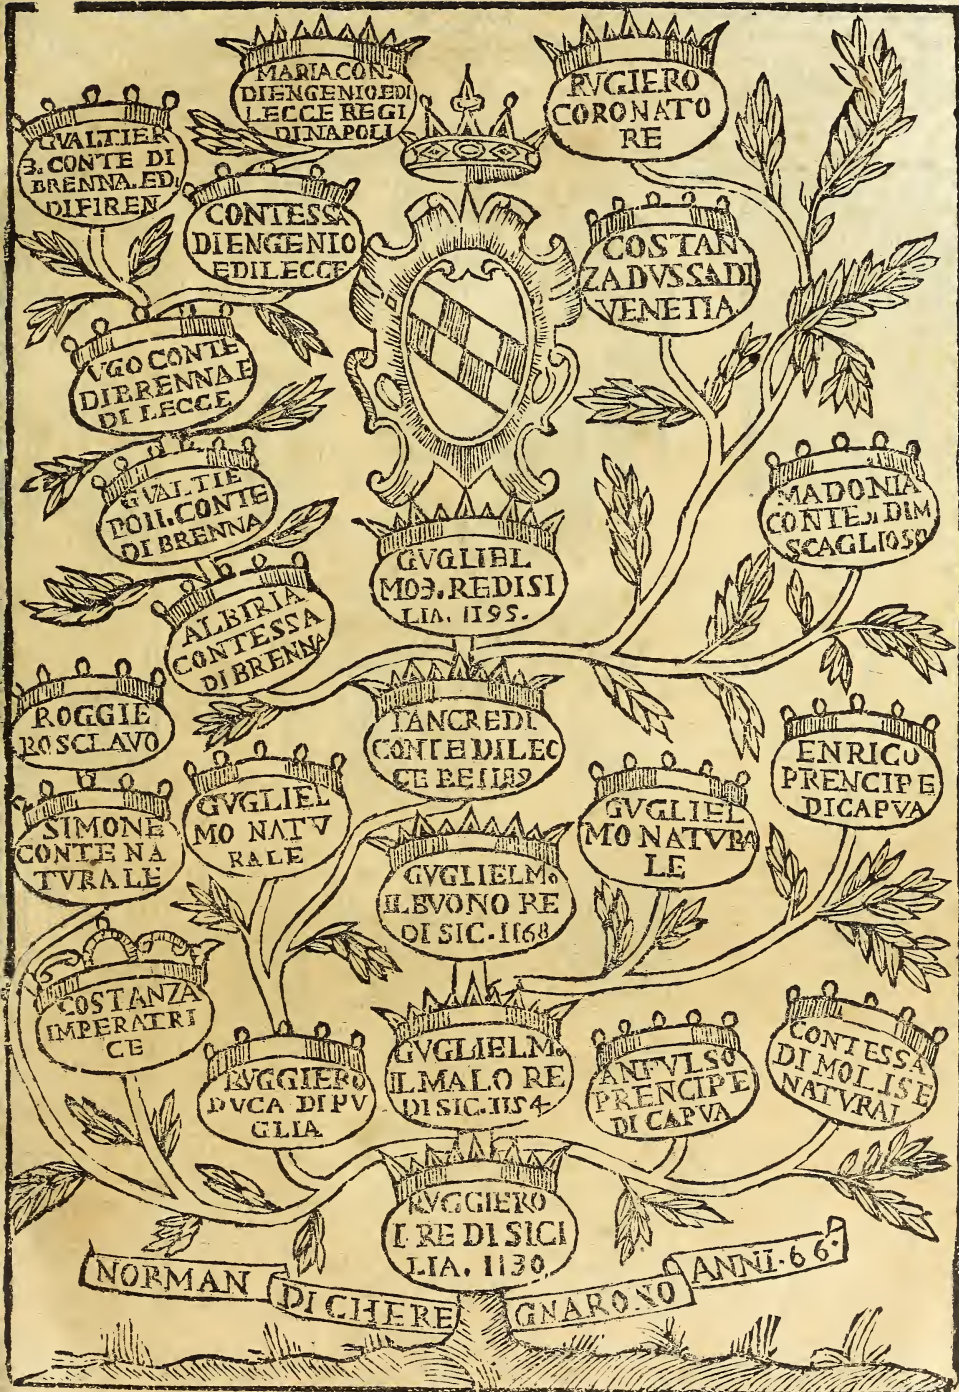 MARIA CON.
DIENGENIO EDI
LECCE REGI
DINAPOLI
RVGIERO
CORONATO
RE
GVALTIER
3. CONTE DI
BRENNA. ED.
DIFIREN
CONTESSA
DIENGENIO
EDILECCE
COSTAN
ZADVSSADI
VENETIA
VGO CONTE
DIBRENNAE
DI LECCE
GVALTIE
ROII. CONTE
DI BRENNA
MADONIA
CONTE DIM
SCAGLIOSO
GVGLIEL
MO3. REDISI
LIA. 1195.
ALBIRIA
CONTESSA
DI BRENNA
ROGGIE
ROSCLAVO
TANCREDI
CONTE DILEC
CE RE 1189
ENRICO
PRENCIPE
DICAPVA
SIMONE
CONTE NA
TVRALE
GVGLIEL
MO NATV
RALE
GVGLIEL
MO NATVRA
LE
GVGLIELMo
ILBVONO RE
DI SIC. 1168
COSTANZA
IMPERATRI
CE
RVGGIERO
DVCA DIPV
GLIA
GVGLIELMo
ILMALO RE
DI SIC. 1154
ANFVLSO
PRENCIPE
DI CAPVA
CONTESSA
DI MOLISE
NATVRAL
RVGGIERO
I. RE DI SICI
LIA. 1130
NORMAN DI CHERE GNARONO ANNI. 66.